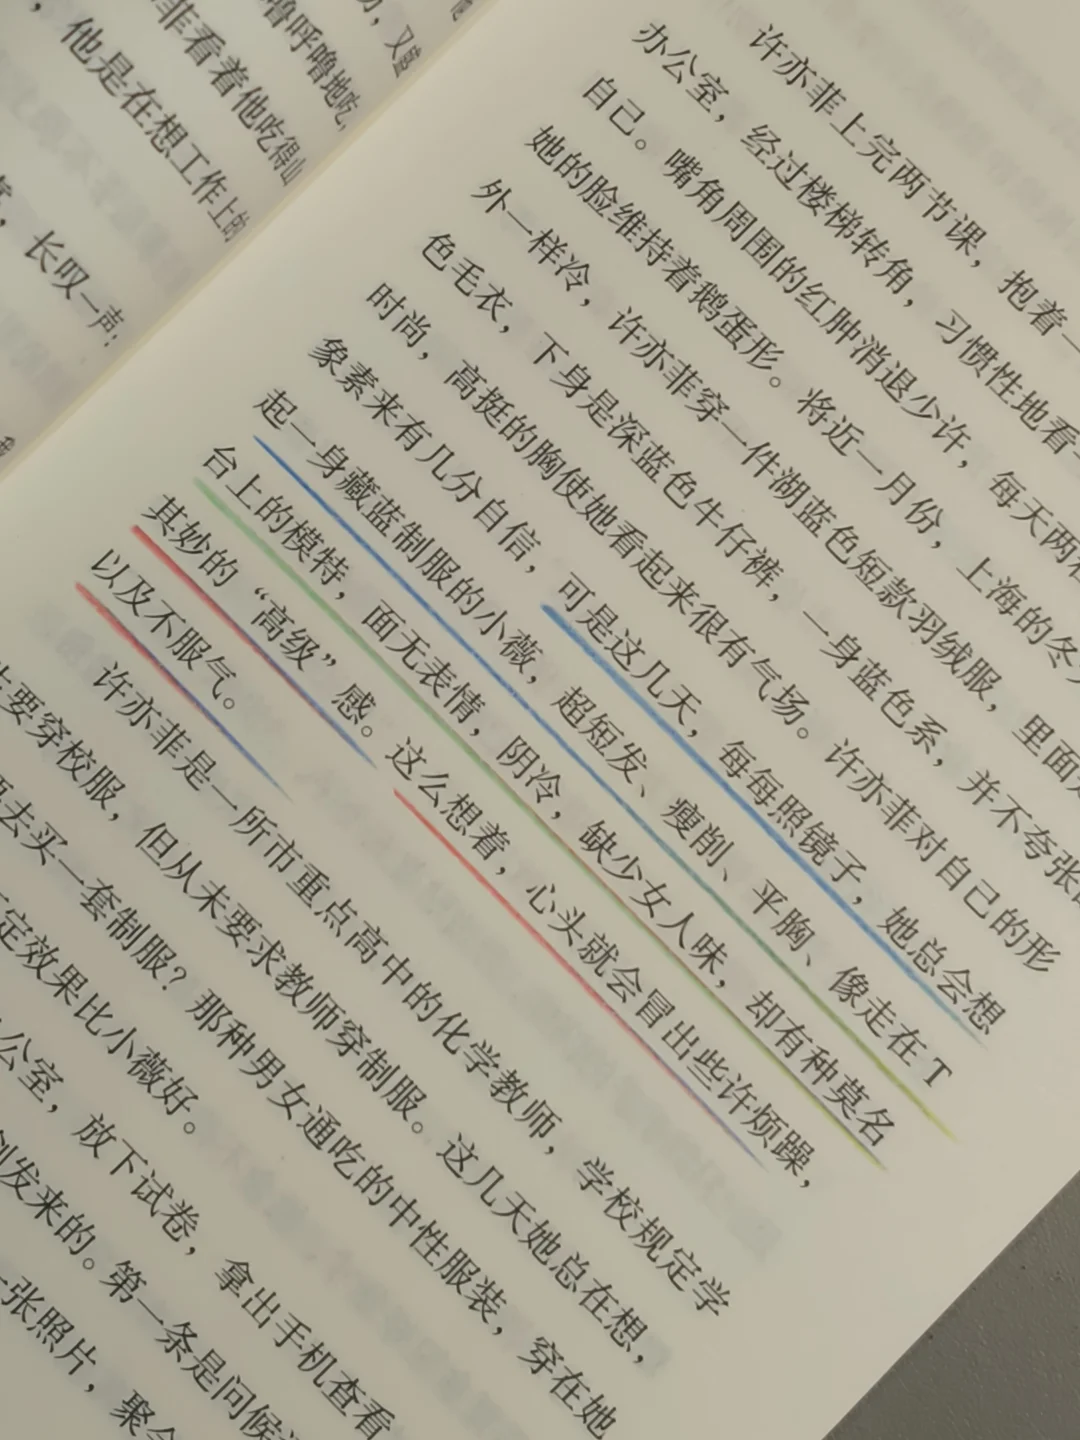 噜呼噜地吃,
菲看着他吃得
他是在想工作上的
长叹一声:
许亦菲上完两节课，抱着一
办公室，经过楼梯转角，习惯性地看
自己。嘴角周围的红肿消退少许，每天两
她的脸维持着鹅蛋形。将近一月份，上海的冬
外一样冷，许亦菲穿一件湖蓝色短款羽绒服，里面
色毛衣，下身是深蓝色牛仔裤，一身蓝色系，并不夸张
时尚，高挺的胸使她看起来很有气场。许亦菲对自己的形
象素来有几分自信，可是这几天，每每照镜子，她总会想
起一身藏蓝制服的小薇，超短发、瘦削、平胸、像走在T
台上的模特，面无表情，阴冷，缺少女人味，却有种莫名
其妙的“高级”感。这么想着，心头就会冒出些许烦躁，
以及不服气。
许亦菲是一所市重点高中的化学教师，学校规定学
要穿校服，但从未要求教师穿制服。这几天她总在想，
去买一套制服？那种男女通吃的中性服装，穿在她
定效果比小薇好。
公室，放下试卷，拿出手机查看
发来的。第一条是问候
张照片，聚